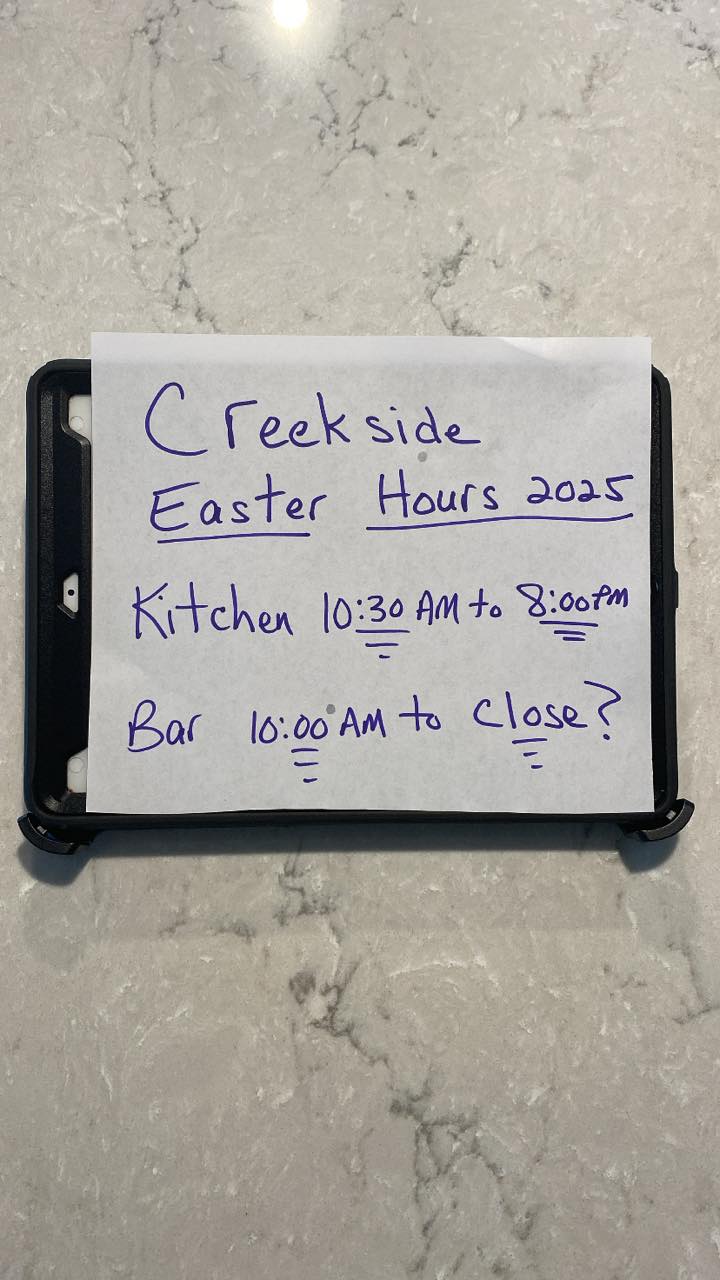 Creekside
Easter Hours 2025
Kitchen 10:30 AM to 8:00PM
Bar 10:00 AM to close?